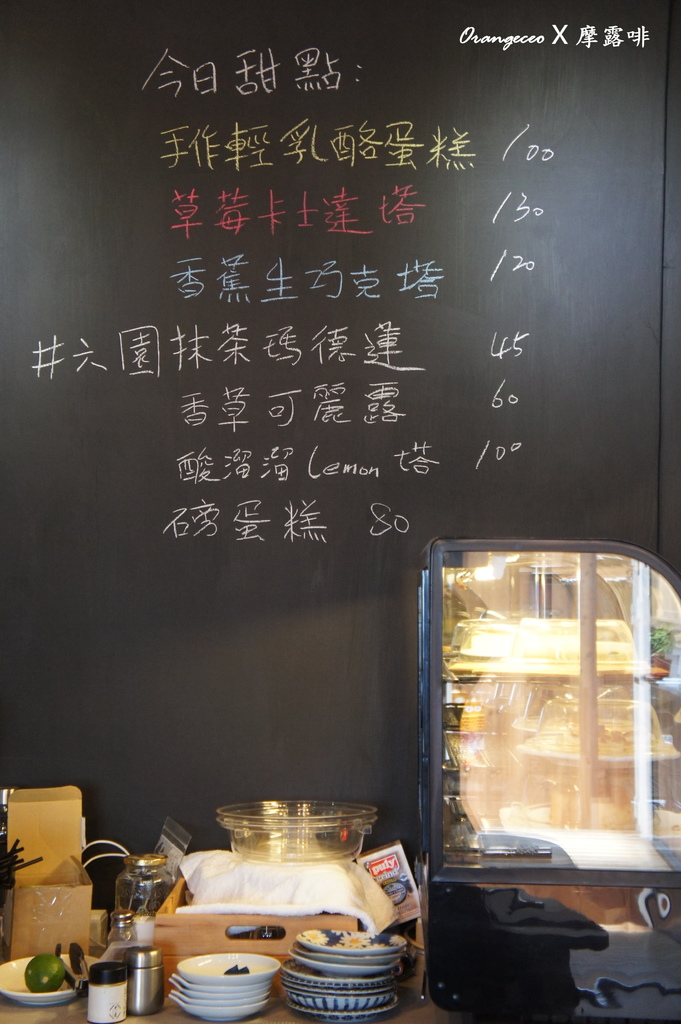 Orangeceo X 摩露啡
今日甜點:
手作輕乳酪蛋糕 100
草莓卡士達塔 130
香蕉生巧克塔 120
#六園抹茶瑪德蓮 45
香草可麗露 60
酸溜溜Lemon塔 100
磅蛋糕 80
puly
grind